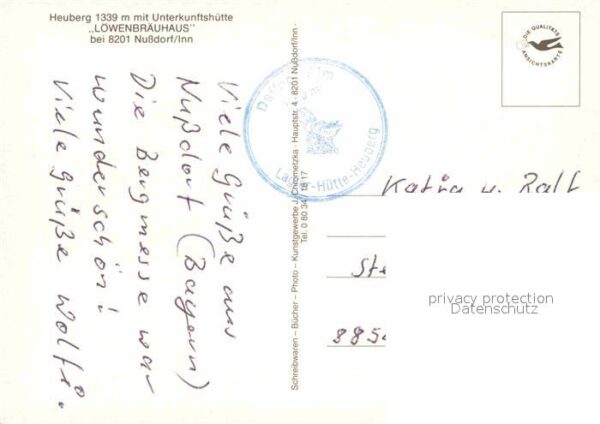 Heuberg 1339 m mit Unterkunftshütte
„LÖWENBRÄUHAUS"
bei 8201 Nußdorf/Inn
Viele Grüße aus
Nußdorf (Bayern)
Die Bergmesse war
wunderschön!
Viele Grüße Wolfi.
Laglers-Hütte-Heuberg
Schreibwaren – Bücher – Photo – Kunstgewerbe J. Chrometzka · Hauptstr. 4 · 8201 Nußdorf/Inn ·
Tel. 0 80 34 / 18 17
DIE QUALITÄTS
ANSICHTSKARTE
Katja u. Ralf
privacy protection
Datenschutz